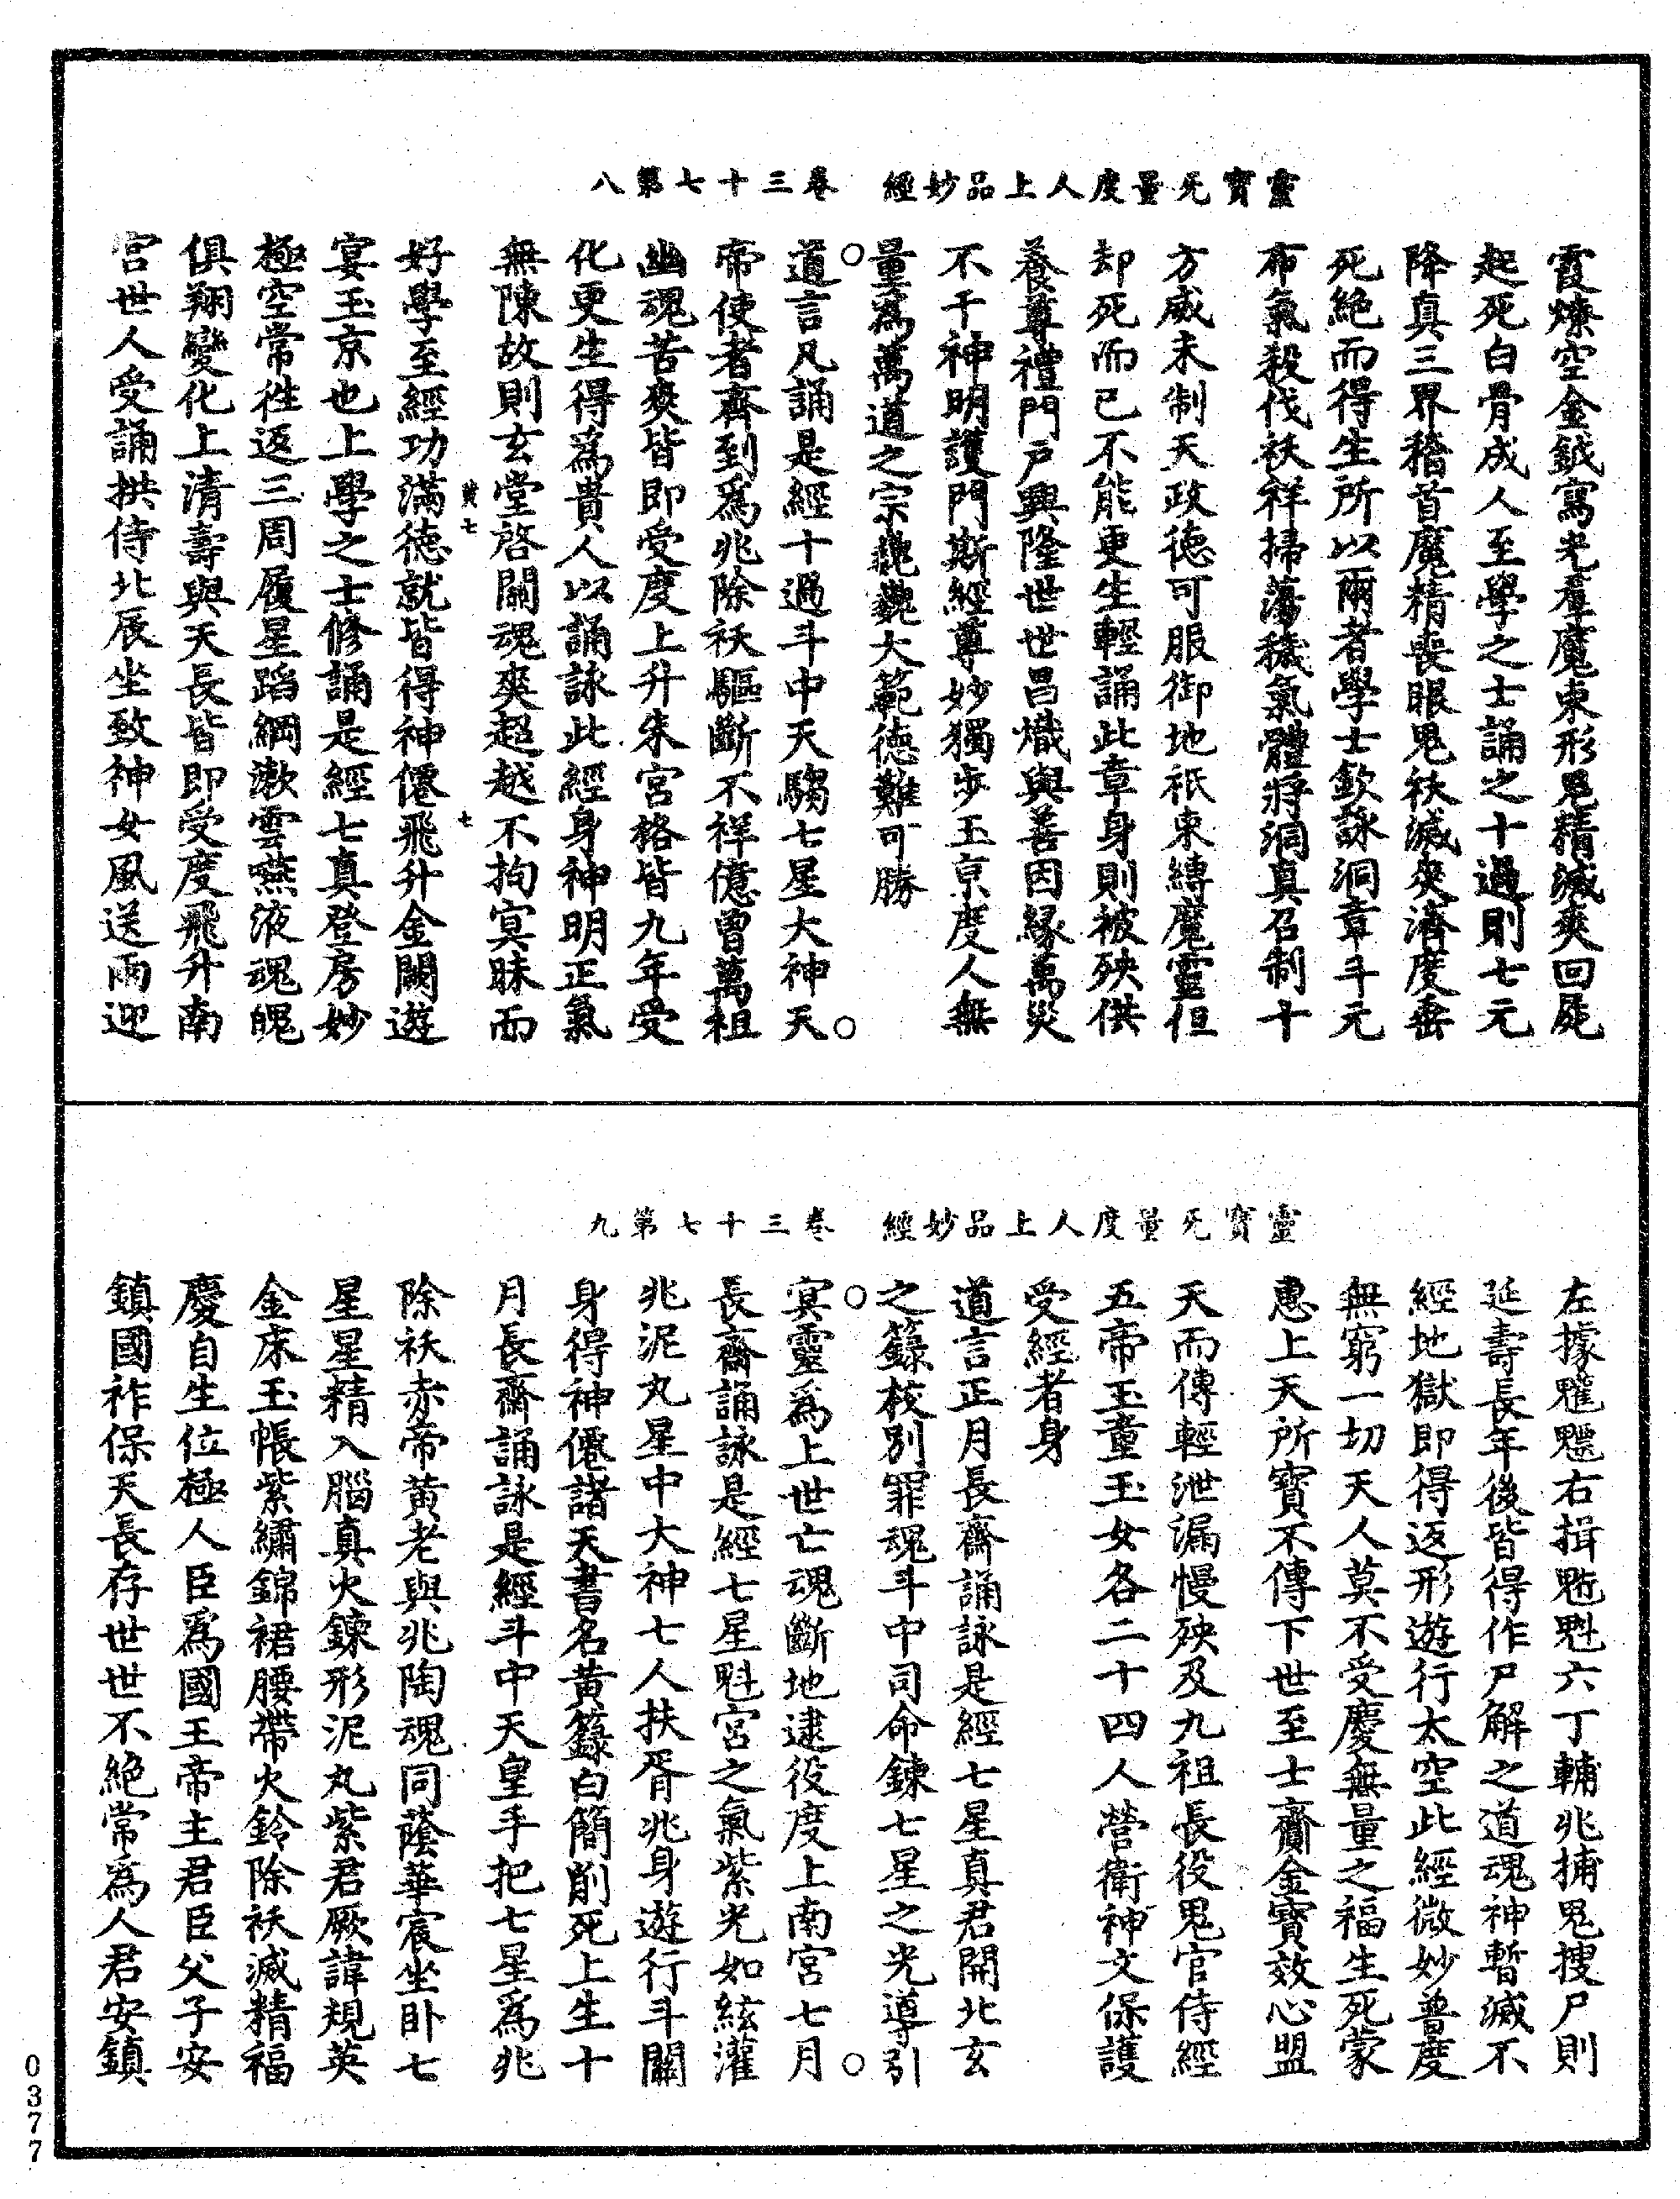 靈寶无量度人上品妙經　卷三十七第八
霞爍空金鉞寫光羣魔束形鬼精滅爽回屍
起死白骨成人至學之士誦之十過則七元
降真三界稽首魔精喪眼鬼袄滅爽濟度垂
死絕而得生所以爾者學士欽詠洞章斗元
布氣殺伐袄祥掃蕩穢氣體將洞真召制十
方威未制天政德可服御地祇束縛魔靈但
却死而已不能更生輕誦此章身則被殃供
養尊禮門戶興隆世世昌熾與善因緣萬災
不干神明護門斯經尊妙獨步玉京度人無
量為萬道之宗巍巍大範德難可勝
道言凡誦是經十過斗中天騶七星大神天
帝使者齊到為兆除袄驅斷不祥億曾萬祖
幽魂苦爽皆即受度上升朱宮格皆九年受
化更生得為貴人以誦詠此經身神明正氣
無陳故則玄堂啓關魂爽超越不拘冥昧而
黃七
七
好學至經功滿德就皆得神僊飛升金闕遊
宴玉京也上學之士修誦是經七真登房妙
極空常往返三周履星蹈綱漱雲嚥液魂魄
俱翔變化上清壽與天長皆即受度飛升南
宮世人受誦拱侍北辰坐致神女風送雨迎
靈寶无量度人上品妙經　卷三十七第九
左據魓魒右揖魁六丁輔兆捕鬼搜尸則
延壽長年後皆得作尸解之道魂神暫滅不
經地獄即得返形遊行太空此經微妙普度
無窮一切天人莫不受慶無量之福生死蒙
惠上天所寶不傳下世至士齎金寶效心盟
天而傳輕泄漏慢殃及九祖長役鬼官侍經
五帝玉童玉女各二十四人營衛神文保護
受經者身
道言正月長齋誦詠是經七星真君開北玄
之籙校別罪魂斗中司命鍊七星之光導引
冥靈為上世亡魂斷地逮役度上南宮七月
長齋誦詠是經七星魁宮之氣紫光如絃灌
兆泥丸星中大神七人扶胥兆身遊行斗關
身得神僊諸天書名黃籙白簡削死上生十
月長齋誦詠是經斗中天皇手把七星為兆
除袄赤帝黃老與兆陶魂同蔭華宸坐卧七
星星精入腦真火鍊形泥丸紫君厥諱規英
金床玉帳紫繡錦裙腰帶火鈴除袄滅精福
慶自生位極人臣為國王帝主君臣父子安
鎮國祚保天長存世世不絕常為人君安鎮
0377